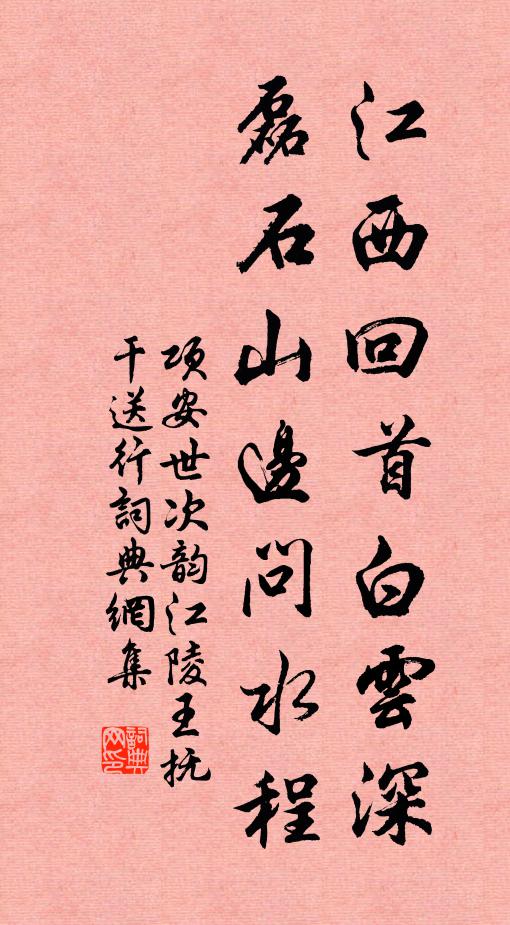 江西回首白雲深
磊石山邊問水程
項安世次韵江陵王抚
干送行詞典網集
詞典
网印